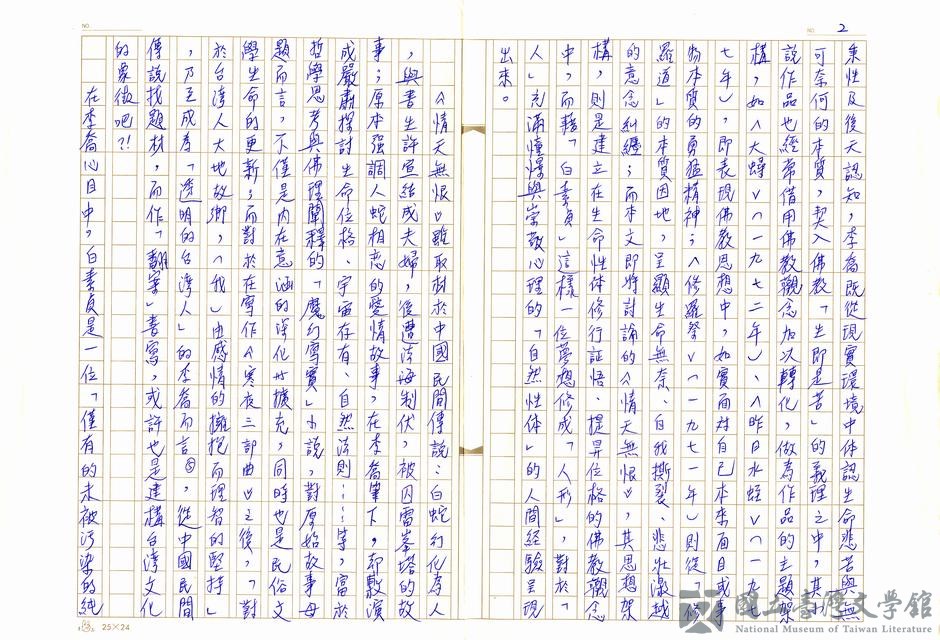 2
秉性及後天認知，李喬既從現實環境中体認生命悲苦與無
可奈何的本質，契入佛教「生即是苦」的義理之中，其小
說作品也經常借用佛教觀念加以轉化，做為作品的主題架
構，如〈大蟳〉（一九七二年）、〈昨日水蛭〉（一九七
七年），即表現佛教思想中，如實面对自己本來面目或事
物本質的勇猛精神；〈修羅祭〉（一九七一年）則從「修
羅道」的本質因地，呈顯生命無奈、自我撕裂、悲壯激越
的意念糾纏；而本文即將討論的《情天無恨》，其思想架
構，則是建立在生命性体修行証悟、提昇位格的佛教觀念
中，而藉「白素貞」這樣一位夢想修成「人形」，對於「
人」充滿憧憬與崇敬心理的「自然性体」的人間經驗呈現
出來。
《情天無恨》雖取材於中國民間傳說：白蛇幻化為人
，與書生許宣結成夫婦，後遭法海制伏，被囚雷峯塔的故
事；原本強調人蛇相恋的愛情故事，在李喬筆下，却敷演
成嚴肅探討生命位格、宇宙存有、自然法則……等，富於
哲學思考與佛理闡釋的「魔幻寫實」小說，對原始故事母
題而言，不僅是內在意涵的深化與擴充，同時也是民俗文
學生命的更新；而對於在寫作《寒夜三部曲》之後，「對
於台灣人大地故鄉，（我）由感情的擁抱而理智的堅持」
，乃至成為「透明的台灣人」的李喬而言，從中國民間
傳說找題材，而作「翻案」書寫，或許也是建構台灣文化
的象徵吧？！
在李喬心目中，白素貞是一位「僅有的未被污染的純
25×24
國立臺灣文學館
National Museum of Taiwan Literature